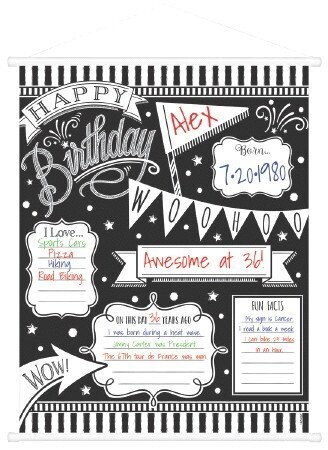 HAPPY
Birthday
Alex
Born...
7-20-1980
WOOHOO
I Love...
Sports Cars
Pizza
Hiking
Road Biking
Awesome at 36!
ON THIS DAY 36 YEARS AGO
I was born during a heat wave.
Jimmy Carter was President.
The 67th tour de France was won.
FUN FACTS
My sign is Cancer
I read a book a week
I can bike 24 miles
in an hour.
WOW!